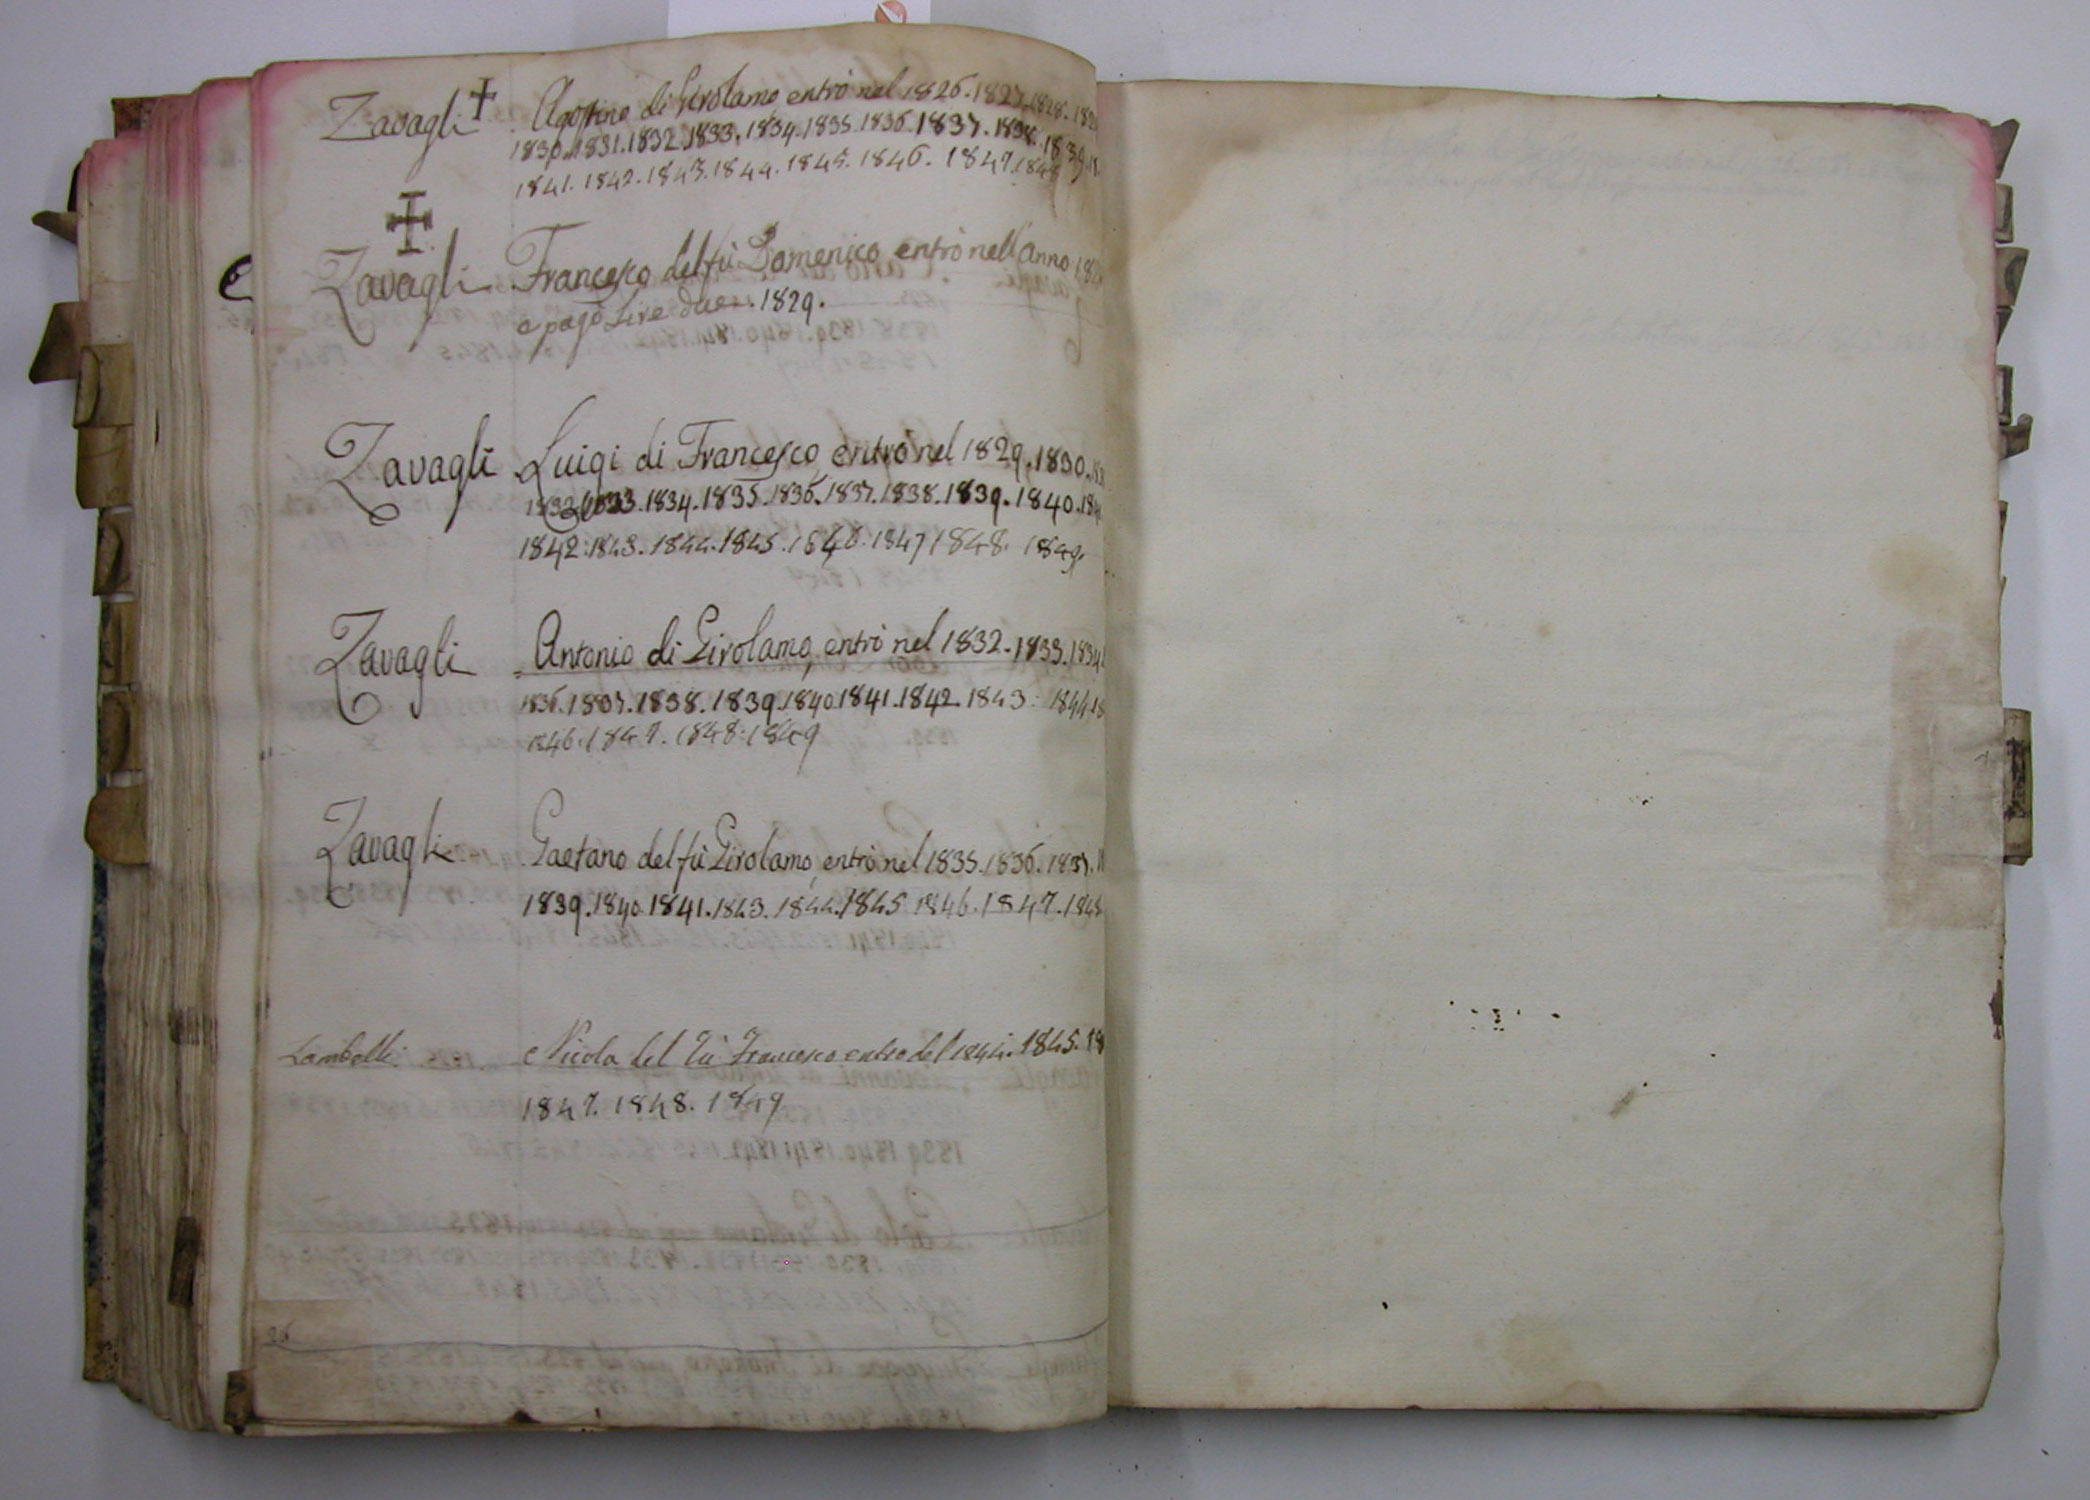 Zavagli Agostino di Girolamo entrò nel 1826. 1827. 1828. 1829
1830. 1831. 1832. 1833. 1834. 1835. 1836. 1837. 1838. 1839.
1841. 1842. 1843. 1844. 1845. 1846. 1847. 1848
Zavagli Francesco del fù Domenico entrò nell'anno
e pagò Lire due. 1829.
Zavagli Luigi di Francesco, entrò nel 1829. 1830.
1832. 1833. 1834. 1835. 1836. 1837. 1838. 1839. 1840.
1842. 1843. 1844. 1845. 1846. 1847 1848. 1849.
Zavagli Antonio di Girolamo, entrò nel 1832. 1833. 1834
1836. 1837. 1838. 1839. 1840. 1841. 1842. 1843. 1844.
1846. 1847. 1848. 1849
Zavagli Gaetano del fù Girolamo, entrò nel 1835. 1836. 1837.
1839. 1840. 1841. 1843. 1844. 1845 1846. 1847. 1848
Zambelli Nicola del Fù Francesco entro del 1844. 1845.
1847. 1848. 1849